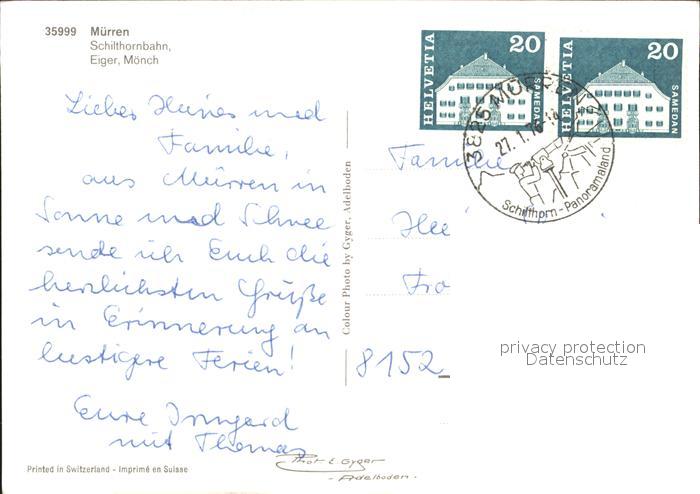 35999 Mürren
Schilthornbahn,
Eiger, Mönch
Lieber Heines und
Familie,
aus Mürren in
Sonne und Schnee
sende ich Euch die
herzlichsten Grüße
in Erinnerung an
lustigere Ferien!
Eure Irmgard
mit Thomas
Printed in Switzerland - Imprimé en Suisse
Phot E. Gyger
- Adelboden -
Colour Photo by Gyger, Adelboden
HELVETIA 20 SAMEDAN
HELVETIA 20 SAMEDAN
3825 MÜRREN
27.1.76
Schilthorn-Panoramaland
Familie
Hei
Fro
8152
privacy protection
Datenschutz